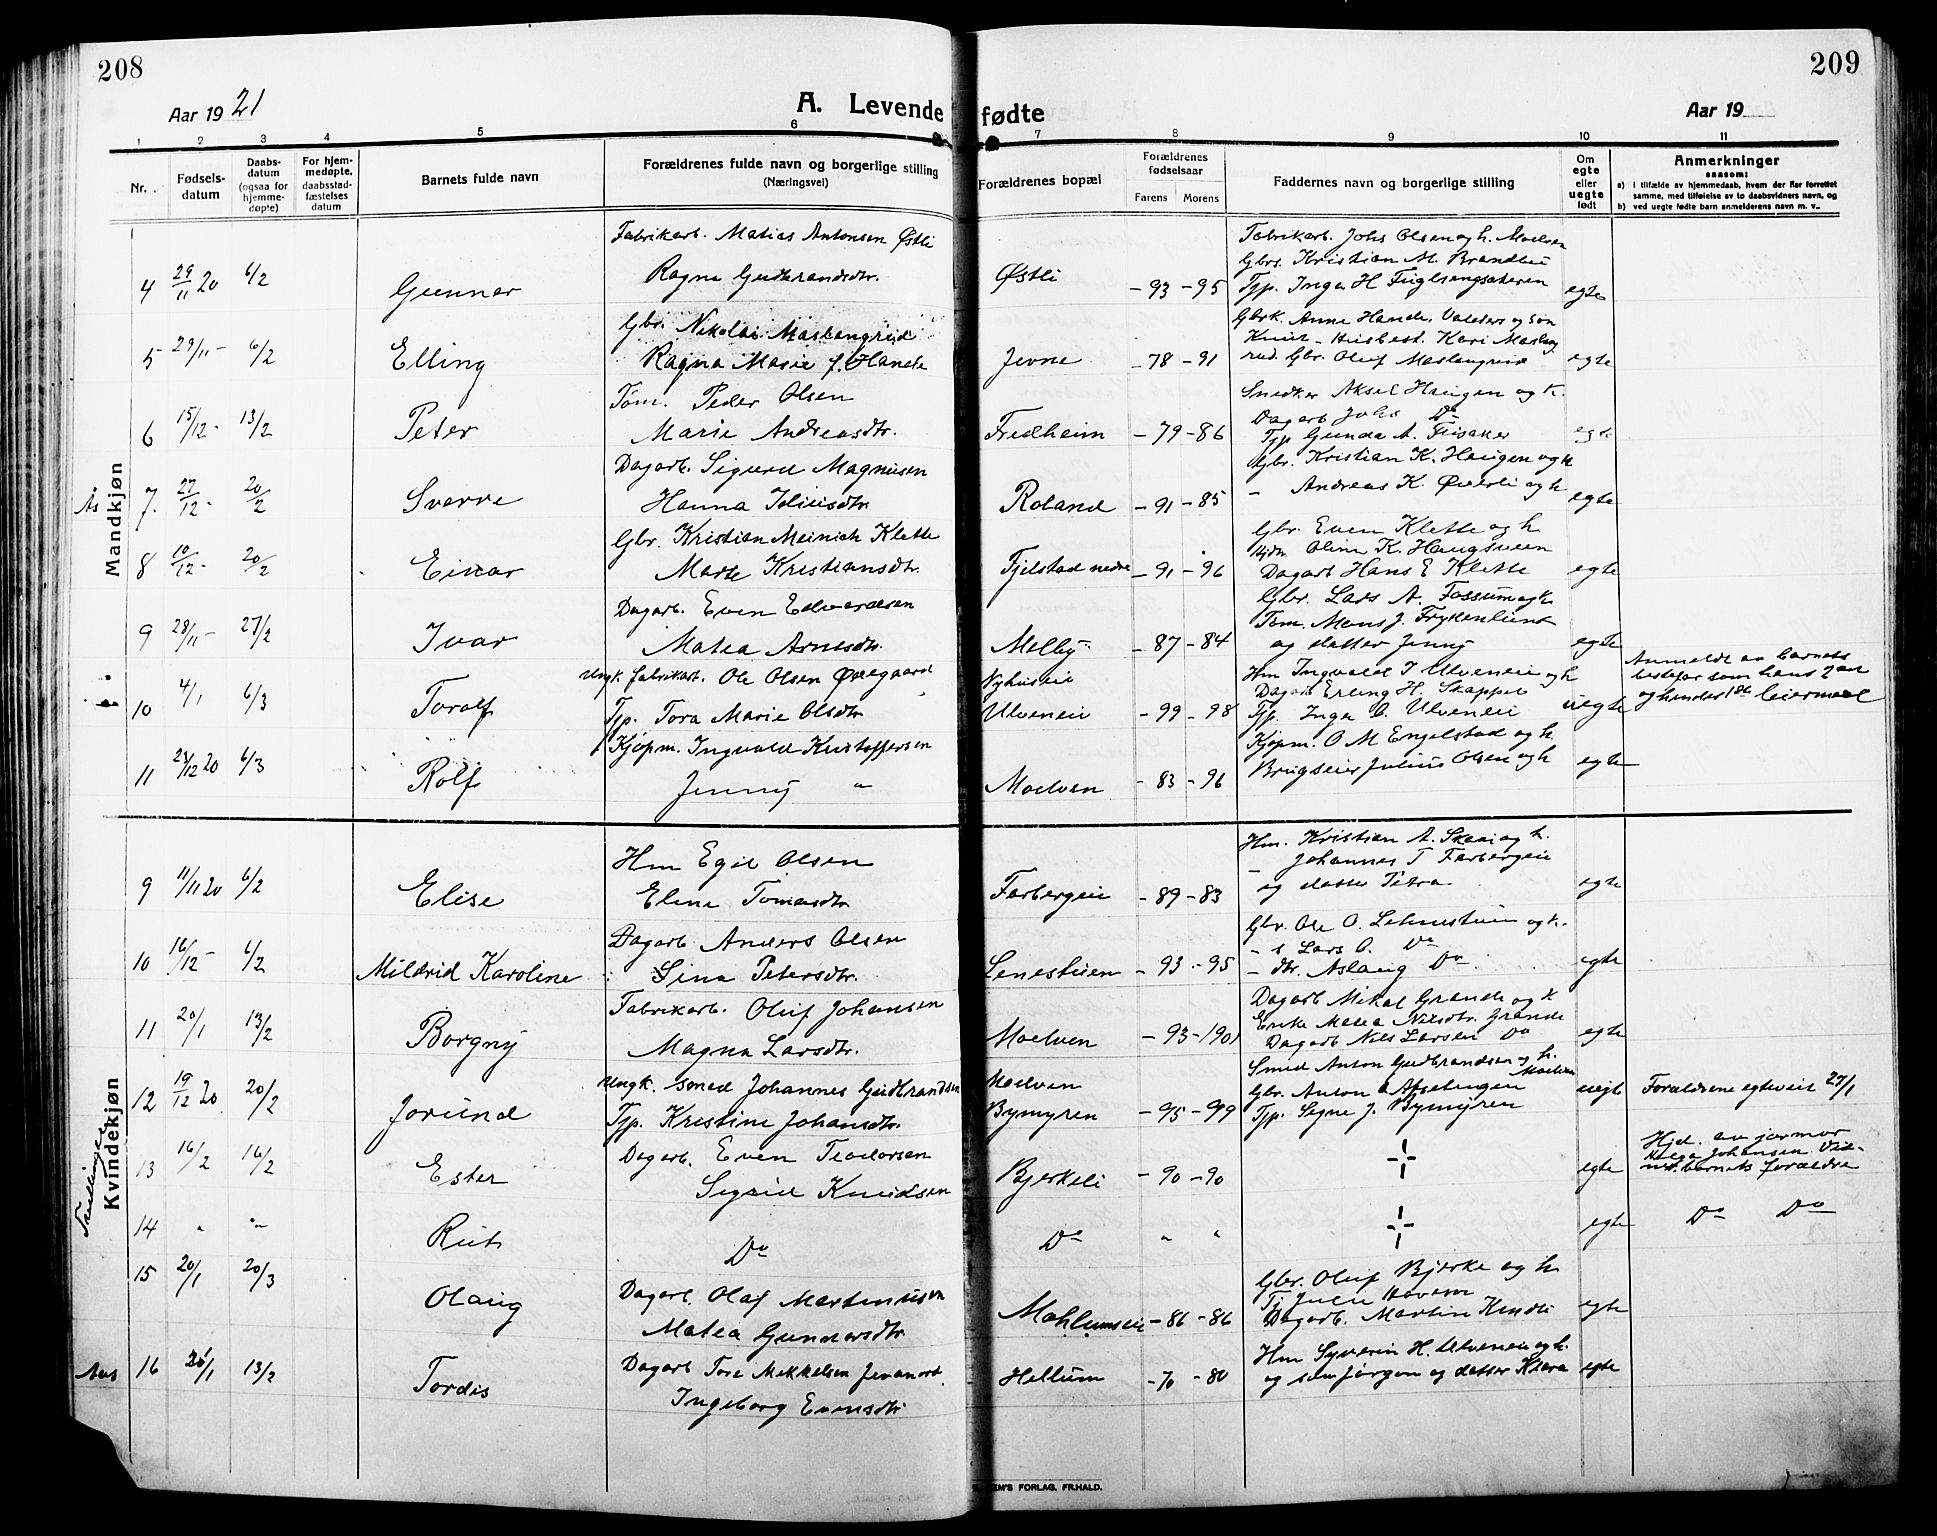 208
209
Aar 1921
A. Levende fødte
Aar 19
1 2 3 4 5 6 7 8 9 10 11
Nr.
Fødsels-
datum
Daabs-
datum
(ogsaa for
hjemme-
døpte)
For hjem-
medøpte,
daabsstad-
fæstelses
datum
Barnets fulde navn
Forældrenes fulde navn og borgerlige stilling
(Næringsvei)
Forældrenes bopæl
Forældrenes
fødselsaar
Farens Morens
Faddernes navn og borgerlige stilling
Om
egte
eller
uegte
født
Anmerkninger
saasom:
a) i tilfælde av hjemmedaab, hvem der har forrettet
samme, med tilføielse av to daabsvidners navn, og
b) ved uegte fødte barn anmelderens navn m. v..
Mandkjøn
Fabrikarb. Matias Antonsen Østli
Fabrikarb. Johs Olsen og h. Moelven
4 29/11 20 6/2 Gunnar Ragna Gudbrandsdtr. Østli -93 -95 egte
Gbr. Kristian M. Brandlie
Tjp. Inga H Fuglsengstuen
Gbr. Nikolai Maslangrud
Gbrk. Anne Hande, Valders og søn
5 29/11 - 6/2 Elling Ragna Marie f. Hande Jevne -78 -91 egte
Knut - Husbest. Kari Maslang
rud. Gbr. Oluf Maslangrud
Tøm. Peder Olsen
Snedker Aksel Haugen og k.
6 15/12 - 13/2 Peter Marie Andreasdtr. Fredheim -79 -86 egte
Dagarb Johs Do
Tjp Gunda A. Fusaker
Dagarb. Sigurd Magnusen
Gbr. Kristian K. Haugen og k
Ås 7. 27/12 - 20/2 Sverre Hanna Juliusdtr. Roland -91 -85 egte
- Andreas K. Øverli og h
Gbr. Kristian Meinich Klette
Gbr. Even Klette og h
8 10/12 - 20/2 Einar Marte Kristiansdtr. Fjelstad nedre -91 -96 egte
Oline K. Haugsveen
Dagarb Hans E Klette
Dagarb. Even Edvardsen
Gbr. Lars A. Fossum og k
9 28/11 - 27/2 Ivar Matea Arnesdtr. Melby -87 -84 egte
Tøm. Mons J. Frydenlund
og datter Jenny
Ungk. fabrikarb. Ole Olsen Øvegaard
Nyhuseie
10 4/1 6/3 Toralf Tjp. Tora Marie Olsdtr. Ulveneie -99 -98 uegte
Hm Ingvald J Ulveneie og h
Dagarb Erling H. Skappel
Tjp. Inga O. Ulveneie
Anmeldt av barnets
bestefar som hans 2det
og hendes 1ste leiermaal
Kjøpm. Ingvald Kristoffersen
Kjøpm. O M Engelstad og h
11 23/12 20 6/3 Rolf Jenny " Moelven -83 -96 egte
Brugseier Julius Olsen og h
Kvindekjøn
Hm Egil Olsen
Hm. Kristian A. Skaai og h.
9 11/11 20 6/2 Elise Elene Tomasdtr. Farbergeie -89 -83 egte
- Johannes T Farbergeie
og datter Petra
Dagarb Anders Olsen
Gbr. Ole O. Lehnestuen og k.
10 16/12 - 6/2 Mildrid Karoline Sina Petersdtr. Lenestuen -93 -95 egte
- s Lars O. Do
- dtr. Aslaug Do
Fabrikarb. Oluf Johansen
Dagarb Mikal Grande og k
11 20/1 13/2 Borgny Magna Larsdtr. Moelven -93 -1901 egte
Enke Matea Nilsdtr. Grande
Dagarb Nils Larsen Do
Ungk. smed Johannes Gudbrandsen
Moelven
Smed Anton Gudbrandsen og h. Moelven
12 19/12 20 20/2 Jorund Tjp. Kristine Johansdtr. Bymyren -95 -99 uegte
Tjp. Signe J. Bymyren
Forældrene egteviet 27/1
Tvillinger
Dagarb. Even Teodorsen
13 16/2 16/2 Ester Sigrid Knudsen Bjerkeli -90 -90 egte
Hjd. av jormor
Helga Johansen Vid-
ner barnets forældre
14 " " Rut Do Do " " egte Do Do
15 20/1 20/3 Olaug Dagarb. Olaf Martinusen
Matea Gunnarsdtr. Mohlumseie -86 -86 egte
Gbr. Oluf Bjerke og h
Tj Julie Hovem
Dagarb. Martin Kindli
Aas 16 13/2 Tordis Dagarb Tore Mikkelsen Jevanord
Ingeborg Evensdtr Hellum -70 -80 egte
Hm Syverin H. Ulveneie og h.
og søn Jørgen og datter Klara
EM'S FORLAG, FR.HALD.